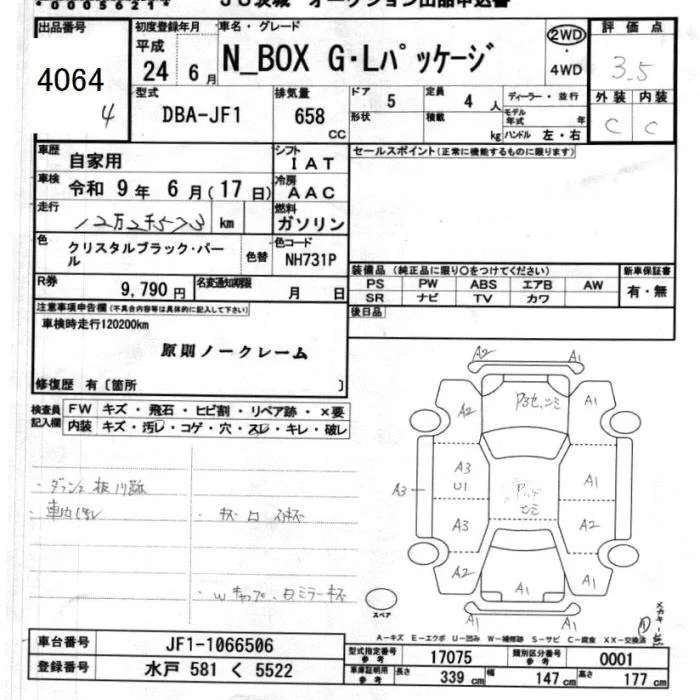 *00056217*
JU茨城 オークション出品申込書
出品番号
4064
4
初度登録年月
平成
24 年 6 月
車名・グレード
N_BOX G・Lパッケージ
2WD
4WD
評価点
3.5
外装 内装
C C
型式
DBA-JF1
排気量
658
CC
ドア
5
定員
4 人
形状
積載
kg
ディーラー・並行
モデル年式 年
ハンドル 左・右
車歴
自家用
シフト
IAT
車検
令和 9 年 6 月 (17 日)
冷房
AAC
走行
12万2千573 km
燃料
ガソリン
色
クリスタルブラック・パール
色替
色コード
NH731P
R券
9,790 円
名変通知期限
月 日
セールスポイント(正常に機能するものに限ります)
装備品 (純正品に限り○をつけてください)
PS PW ABS エアB AW
SR ナビ TV カワ
新車保証書
有・無
後日品
注意事項申告欄(不具合内容等は具体的に記入して下さい)
車検時走行120200km
原則ノークレーム
修復歴 有〔箇所 〕
検査員記入欄
FW キズ・飛石・ヒビ割・リペア跡・×要
内装 キズ・汚レ・コゲ・穴・スレ・キレ・破レ
A2 A1
A2 A1
A3
U1
A3
A1
A3 A2
A2 A1
A1
A1
スペア
A-キズ E-エクボ U-凹み W-補修跡 S-サビ C-腐食 XX-交換済
車台番号
JF1-1066506
登録番号
水戸 581 く 5522
型式指定番号
参考
17075
類別区分番号
参考
0001
車庫証明用
参考
長さ 339 cm
幅 147 cm
高さ 177 cm